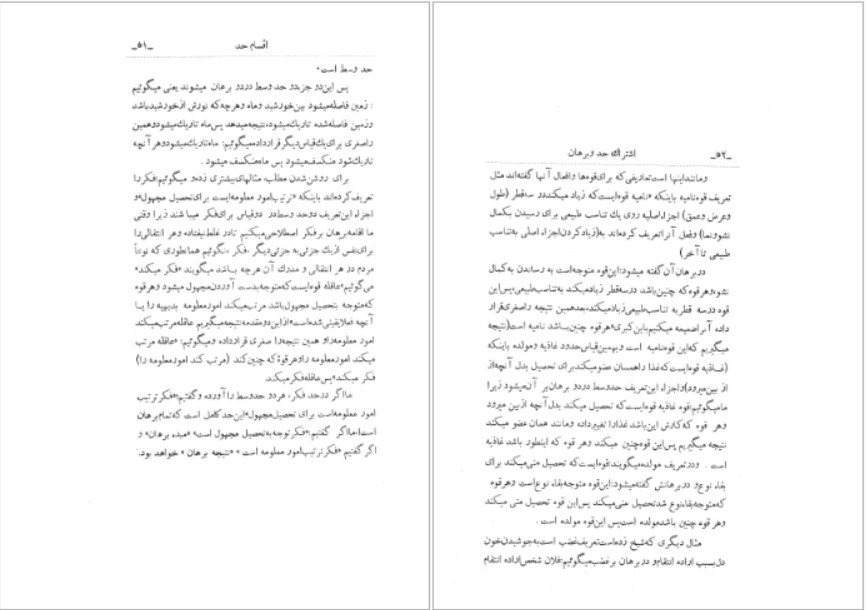 _۵۱_ اقسام حد
حد وسط است.
پس این‌دو جزءدو حد وسط دردو برهان میشوند یعنی میگوئیم
: زمین فاصله‌میشود بین‌خورشید وماه وهرچه‌که نورش ازخورشیدباشد
وزمین فاصله‌شده تاریك‌میشود،نتیجه‌میدهد پس‌ماه تاریك‌میشودوهمین
راصغری برای‌یك‌قیاس‌دیگرقرارداده‌میگوئیم: ماه‌تاریك‌میشودوهرآنچه
تاریك‌شود منکسف‌میشود پس ماه‌منکسف میشود .
برای روشن‌شدن مطلب، مثالهای‌بیشتری زده‌و میگوئیم:فکررا
تعریف‌کرده‌اند باینکه «ترتیب‌امور معلومه‌ایست برای‌تحصیل مجهول»و
اجزاء این‌تعریف دوحد وسط‌در دوقیاس برای‌فکر میبا شند زیرا وقتی
ما اقامه‌برهان برفکر اصطلاحی‌میکنیم تادر غلط‌نیفتاده وهر انتقالی‌را
برای‌نفس ازیك جزئی به جزئی‌دیگر ،فکر ،نگوئیم همانطوری که نوعاً
مردم در هر انتقالی و مدرك آن هرچه باشد میگویند «فکر میکند»
می‌گوئیم«عاقله قوه‌ایست‌که‌متوجه‌بدست آوردن‌مجهول میشود وهرقوه
که‌متوجه بتحصیل مجهول‌باشد مرتب‌میکند امورمعلومه بدیهیه را یا
آنچه فعلایقینی‌شده‌است»ازاین‌دومقدمه‌نتیجه‌میگیریم عاقله‌مرتب‌میکند
امور معلومه‌راو همین نتیجه‌را صغری قرارداده ومیگوئیم: «عاقله مرتب
میکند امورمعلومه راوهرقوهٔ که چنین‌کند (مرتب کند امورمعلومه را)
فکر میکند»پس‌عاقله‌فکرمیکند.
مااگر درحد فکر، هردو حدوسط را آورده و گفتیم:«فکرترتیب
امور معلومه‌است برای تحصیل‌مجهول»این‌حدکامل است که‌تمام‌برهان
است،امااگر گفتیم:«فکرتوجه‌به‌تحصیل مجهول است» «مبدء برهان» و
اگر گفتیم «فکرترتیب‌امور معلومه است» «نتیجه برهان » خواهد بود.
_۵۲_ اشتراك حد وبرهان
ومانند‌اینها است‌تعاریفی که برای‌قوه‌ها وافعال آنها گفته‌اند مثل
تعریف قوه‌نامیه باینکه «نامیه قوه‌ایست‌که زیاد میکند‌در سه‌قطر (طول
وعرض وعمق) اجزاءاصلیه روی یك تناسب طبیعی برای رسیدن بکمال
نشوونما) وفعل آنراتعریف کرده‌اند به(زیادکردن‌اجزاء اصلی به‌تناسب
طبیعی تا آخر)
دربرهان‌آن گفته میشود:این‌قوه متوجه‌است به رساندن به‌کمال
نشو،وهرقوه‌که چنین‌باشد درسه‌قطر زیادمیکند به‌تناسب‌طبیعی،پس‌این
قوه درسه قطر به تناسب طبیعی‌زیادمیکند،بعدهمین نتیجه راصغری‌قرار
داده آنراضمیمه میکنیم‌باین‌کبری«وهرقوه چنین‌باشد نامیه است(نتیجه
میگیریم که‌این قوه‌نامیه است وبهمین‌قیاس‌حدود غاذیه ومولده باینکه
(غاذیه قوه‌ایست‌که‌غذا راهمسان عضومیکند‌برای تحصیل بدل آنچه‌از
از بین‌میرود)واجزاء این‌تعریف حدوسط دردو برهان‌بر آن‌میشود زیرا
مامیگوئیم:قوه غاذیه قوه‌ایست‌که تحصیل میکند بدل آنچه ازبین میرود
وهر قوه که‌کارش این‌باشد غذاراتغیرداده ومانند همان عضو میکند
نتیجه میگیریم پس‌این قوه‌چنین میکند وهر قوه که اینطور باشد غاذیه
است . ودرتعریف مولده‌میگویند:قوه‌ایست‌که تحصیل منی‌میکند برای
بقاء نوع‌و دربرهانش گفته‌میشود:این‌قوه متوجه‌بقاء نوع‌است وهرقوه
که‌متوجه‌بقاءنوع شدتحصیل منی‌میکند پس‌این قوه تحصیل منی میکند
وهر قوه چنین باشدمولده است‌پس این‌قوه مولده است .
مثال دیگری که‌شیخ زده‌است‌تعریف‌غضب است‌به‌جوشیدن‌خون
دل‌بسبب اراده انتقام‌و دربرهان برغضب‌میگوئیم:فلان شخص‌اراده انتقام